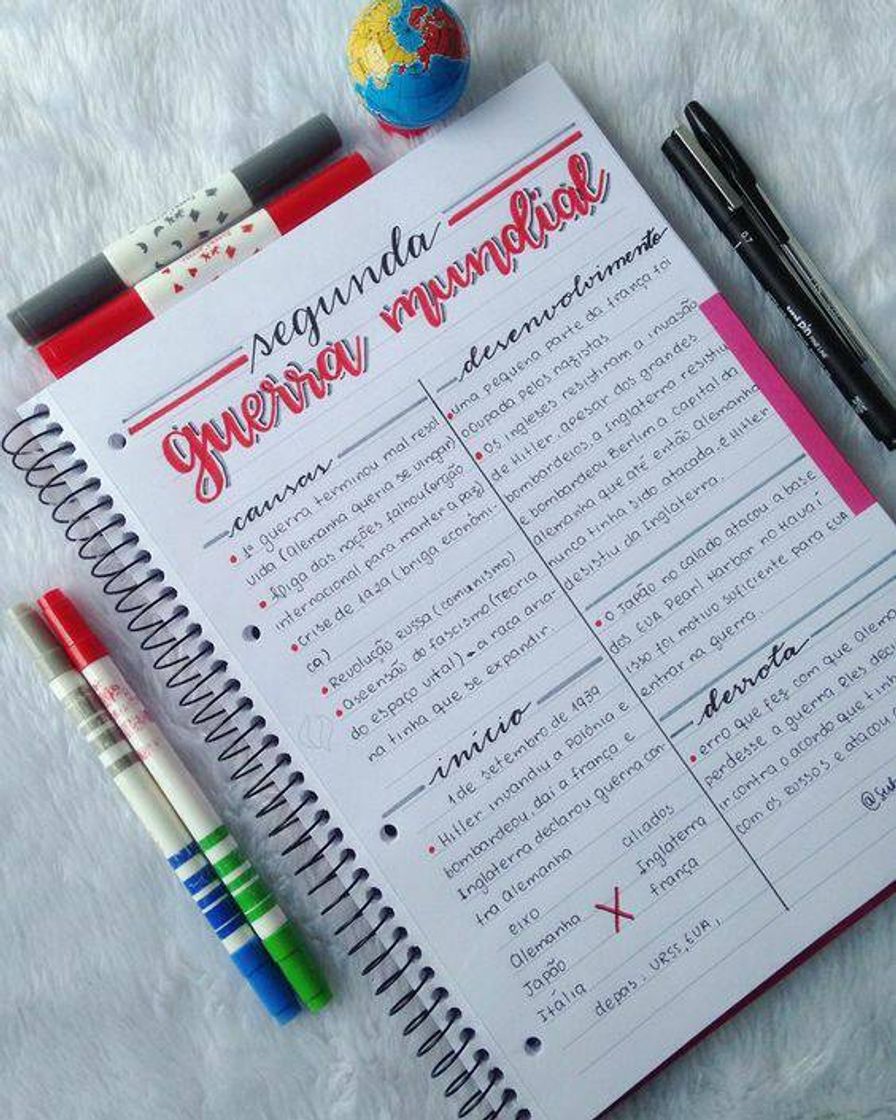 segunda
guerra mundial
causas
• 1ª guerra terminou mal resol
vida (Alemanha queria se vingar)
• Aliga das nações falhou (orgão
internacional para manter a paz)
• Crise de 1929 (briga econômi-
ca)
• Revolução Russa (comunismo)
• Ascensão do fascismo (Teoria
do espaço vital) → a raça aria-
na tinha que se expandir.
início
1 de setembro de 1939
• Hitler invandiu a Polônia e
bombardeou, dai a frança e
Inglaterra declarou guerra con-
tra Alemanha
eixo
aliados
Alemanha X Inglaterra
Japão
frança
Itália
depois: URSS, EUA,
desenvolvimento
• uma pequena parte da frança foi
ocupada pelos nazistas
• Os ingleses resistiram a invasão
de Hitler, apesar dos grandes
bombardeios, a Inglaterra resistiu
e bombardeou Berlim a capital da
alemanha que até então Alemanha
nunca tinha sido atacada, e Hitler
desistiu da Inglaterra.
• O Japão no calado atacou a base
dos EUA Pearl Harbor no Havaí
isso foi motivo suficiente para EUA
entrar na guerra.
derrota
• erro que fez com que Alem
perdesse a guerra Eles deci
ir contra o acordo que tin
com os Russos e atacou
0.7
uni pin
FINE LINE